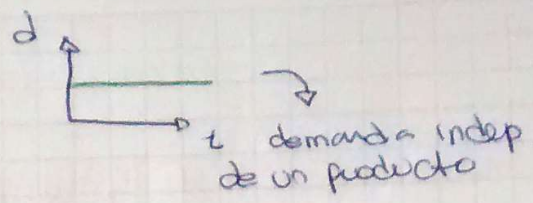 d
t demanda indep
de un producto